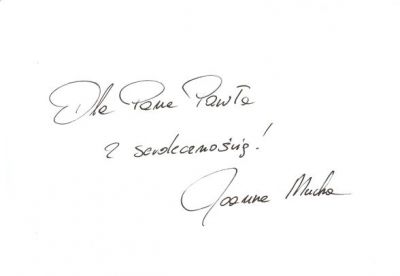 Dla Pana Pawła
z serdecznością!
Joanna Mucha